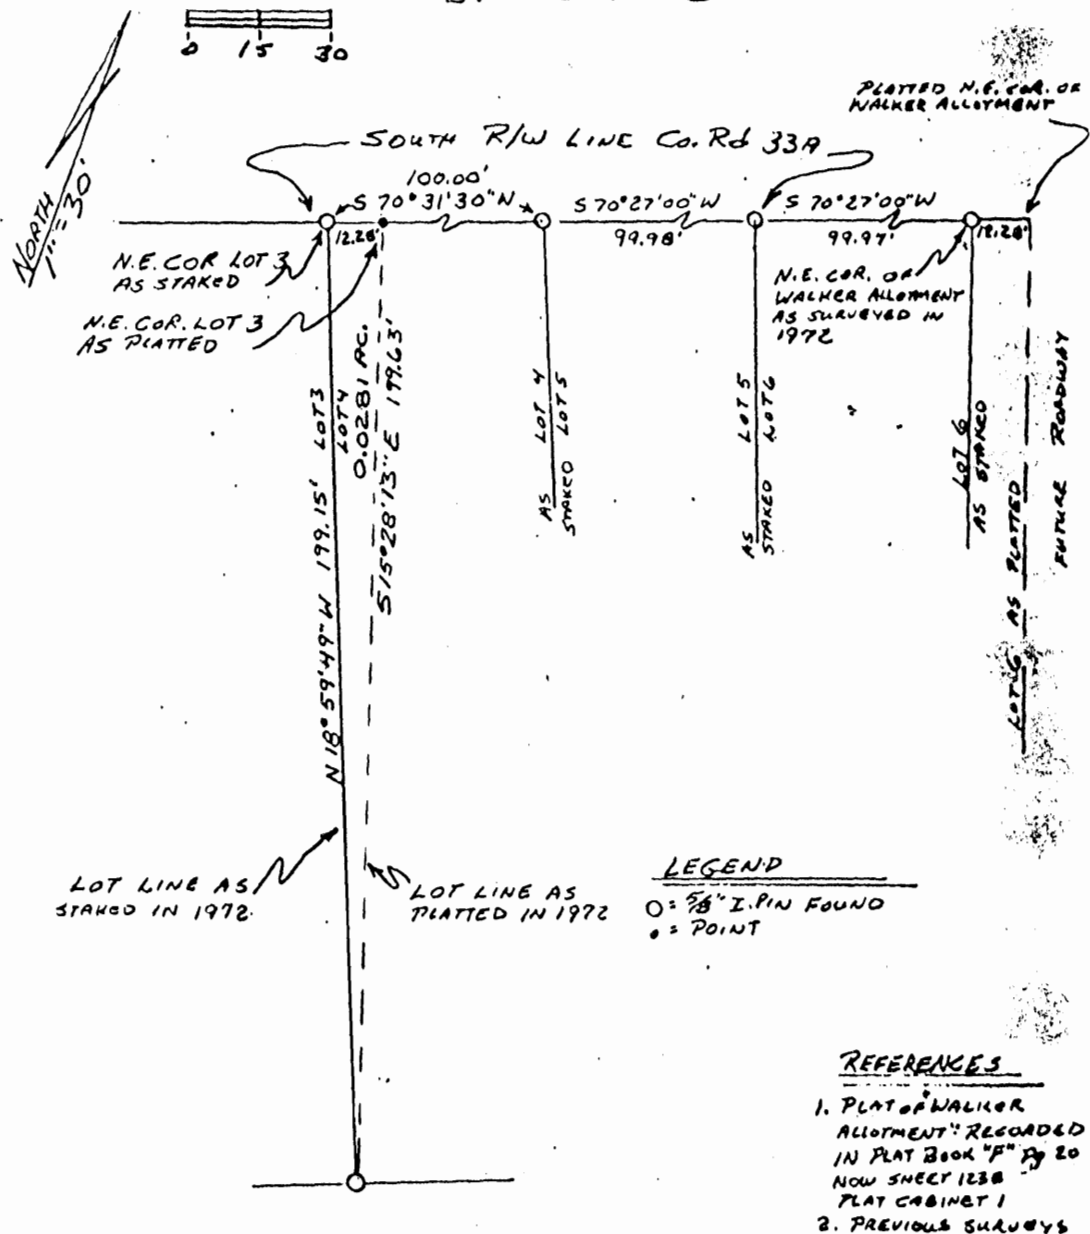 0 15 30
NORTH
1"=30'
PLATTED N.E. COR. OF
WALKER ALLOTMENT
SOUTH R/W LINE Co. Rd 33A
100.00'
S 70°31'30"W
S 70°27'00"W
S 70°27'00"W
12.28'
99.98'
99.97'
12.28'
N.E. COR LOT 3
AS STAKED
N.E. COR. LOT 3
AS PLATTED
N.E. COR. OF
WALKER ALLOTMENT
AS SURVEYED IN
1972
N 18°59'49"W 199.15' LOT 3
LOT 4
0.0281 AC.
S 15°28'13"E 199.63'
LOT 4
AS STAKED LOT 5
LOT 5
AS STAKED LOT 6
LOT 6
AS STAKED
LOT 6 AS PLATTED
FUTURE ROADWAY
LOT LINE AS
STAKED IN 1972
LOT LINE AS
PLATTED IN 1972
LEGEND
O = 5/8" I. PIN FOUND
• = POINT
REFERENCES
1. PLAT OF "WALKER
ALLOTMENT" RECORDED
IN PLAT BOOK "F" Pg 20
NOW SHEET 123B
PLAT CABINET 1
2. PREVIOUS SURVEYS